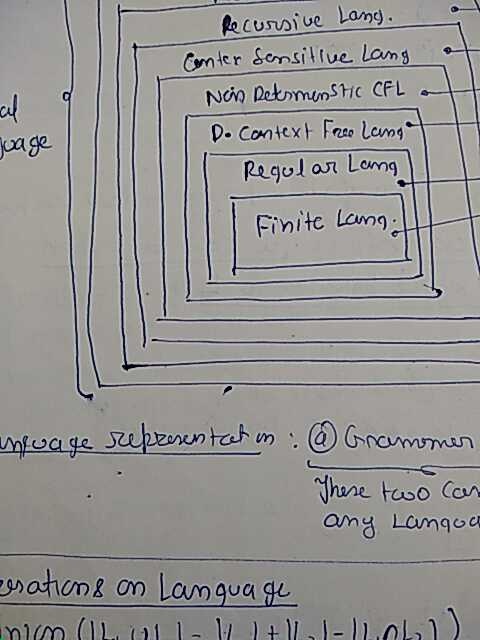 Recursive Lang.
Conter Sensitive Lang
Non Determenstic CFL
al
D. Context Free Lang
uage
Regular Lang
Finite Lang.
anguage representation : ⓐ Grammer
These two can
any Langua
erations on Language